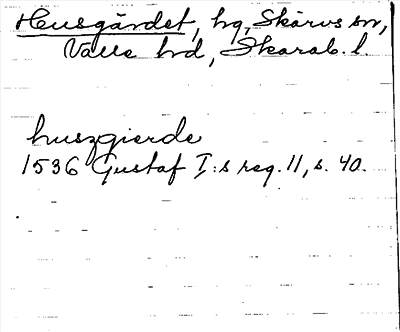 Husgärdet, hg, Skärvs sn,
Valle hd, Skarab. l.
huszgierde
1536 Gustaf I:s reg. 11, s. 40.